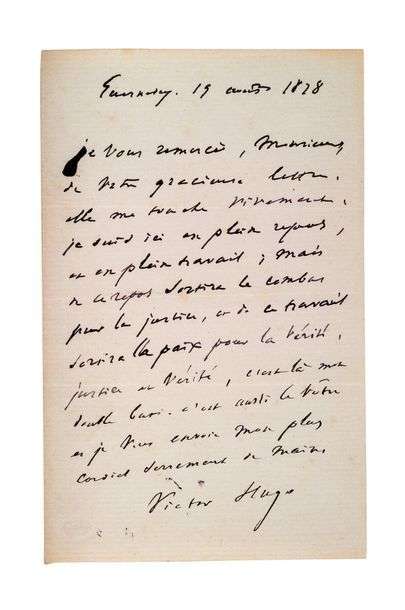 Guernesey. 19 août 1878
je vous remercie, Monsieur,
de votre gracieuse lettre.
elle me touche vivement.
je suis ici en plein repos,
et en plein travail ; mais
de ce repos sortira le combat
pour la justice, et de ce travail
sortira la paix pour la vérité.
justice et vérité, c'est là mon
double but. c'est aussi le vôtre
et je vous envoie mon plus
cordial serrement de mains
Victor Hugo